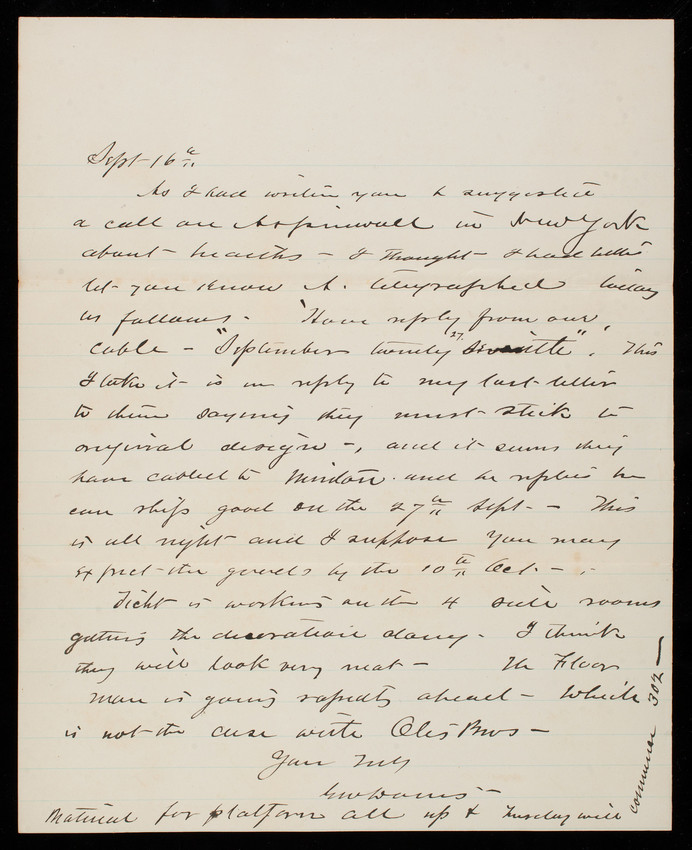 Sept 16th
As I had written you & suggested
a call on Aspinwall in New York
about hearths - I thought I had better
let you know A. telegraphed today
as follows - "Have reply from our
cable - "September twenty 27 seventh". This
I take it is in reply to my last letter
to them saying they must stick to
original design -, and it seems they
have cabled to Minton and he replies he
can ship good on the 27th Sept. - This
is all right and I suppose you may
expect the goods by the 10th Oct. -
Ficht is working on the 4 side rooms
getting the decoration along - I think
they will look very neat - The Floor
man is going rapidly ahead - which
is not the case with Otis Bros -
Your Truly

Material for platform all up & Tuesday will
commence 302